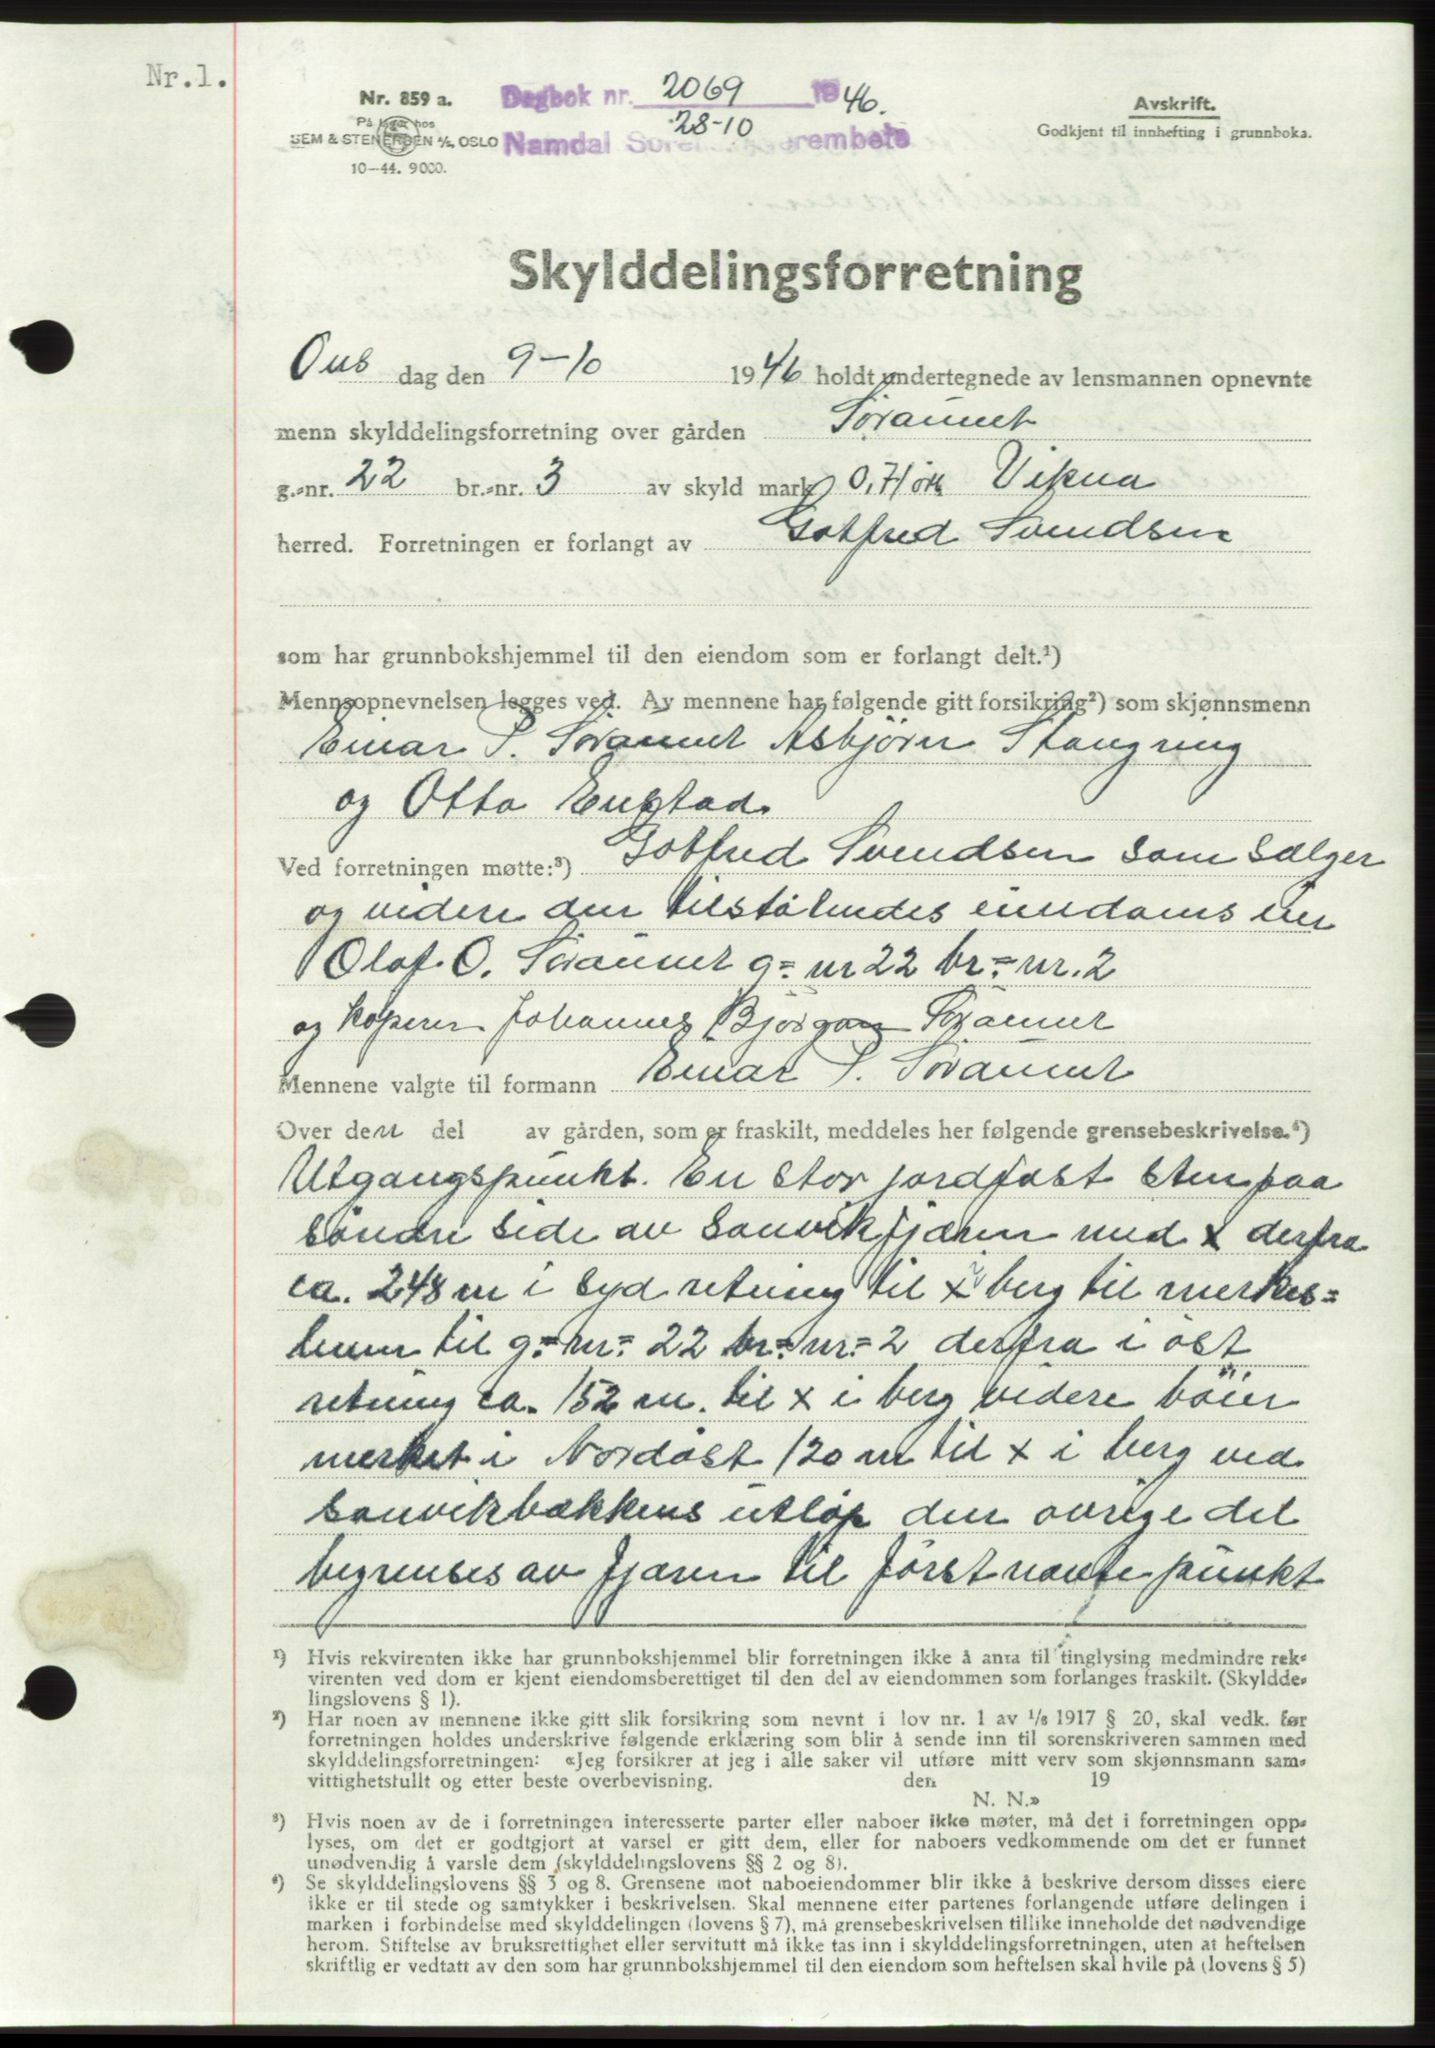 Nr.1.
Nr. 859 a.
På lager hos
SEM & STENERSEN A/S, OSLO
10—44. 9000.
Dagbok nr. 2069 1946.
28-10
Namdal Sorenskriverembete
Avskrift.
Godkjent til innhefting i grunnboka.
Skylddelingsforretning
Ons dag den 9-10 1946 holdt undertegnede av lensmannen opnevnte
menn skylddelingsforretning over gården Söraunet
g.=nr. 22 br.=nr. 3 av skyld mark 0,71 örk Vikna
herred. Forretningen er forlangt av Gotfred Svendsen
som har grunnbokshjemmel til den eiendom som er forlangt delt.¹)
Mennsopnevnelsen legges ved. Av mennene har følgende gitt forsikring²) som skjønnsmenn
Einar P. Söraunet Asbjörn Stangring
og Otto Engstad.
Ved forretningen møtte:³) Gotfred Svendsen som sælger
og videre den tilstötendes eiendoms eier
Olaf. O. Söraunet g= nr 22 br=nr. 2
og köperen Johannes Björgan Söraunet
Mennene valgte til formann Einar P. Söraunet
Over den del av gården, som er fraskilt, meddeles her følgende grensebeskrivelse.⁴)
Utgangspunkt. En stor jordfast sten paa
söndre side av Sanvikfjæren med x derfra
ca. 248 m i syd retning til x i berg til merkes=
linien til g=nr= 22 br=nr=2 derfra i öst
retning ca. 152 m. til x i berg videre böier
merket i Nordöst 120 m til x i berg ved
Sanvikbækkens utlöp den övrige del
begrenses av fjæren til förstnævnte punkt
¹) Hvis rekvirenten ikke har grunnbokshjemmel blir forretningen ikke å anta til tinglysing medmindre rek=
virenten ved dom er kjent eiendomsberettiget til den del av eiendommen som forlanges fraskilt. (Skyldde=
lingslovens § 1).
²) Har noen av mennene ikke gitt slik forsikring som nevnt i lov nr. 1 av 1/8 1917 § 20, skal vedk. før
forretningen holdes underskrive følgende erklæring som blir å sende inn til sorenskriveren sammen med
skylddelingsforretningen: «Jeg forsikrer at jeg i alle saker vil utføre mitt verv som skjønnsmann sam=
vittighetsfullt og etter beste overbevisning. den 19
N. N.»
³) Hvis noen av de i forretningen interesserte parter eller naboer ikke møter, må det i forretningen opp=
lyses, om det er godtgjort at varsel er gitt dem, eller for naboers vedkommende om det er funnet
unødvendig å varsle dem (skylddelingslovens §§ 2 og 8).
⁴) Se skylddelingslovens §§ 3 og 8. Grensene mot naboeiendommer blir ikke å beskrive dersom disses eiere
ikke er til stede og samtykker i beskrivelsen. Skal mennene etter partenes forlangende utføre delingen i
marken i forbindelse med skylddelingen (lovens § 7), må grensebeskrivelsen tillike inneholde det nødvendige
herom. Stiftelse av bruksrettighet eller servitutt må ikke tas inn i skylddelingsforretningen, uten at heftelsen
skriftlig er vedtatt av den som har grunnbokshjemmel til den eiendom som heftelsen skal hvile på (lovens § 5)